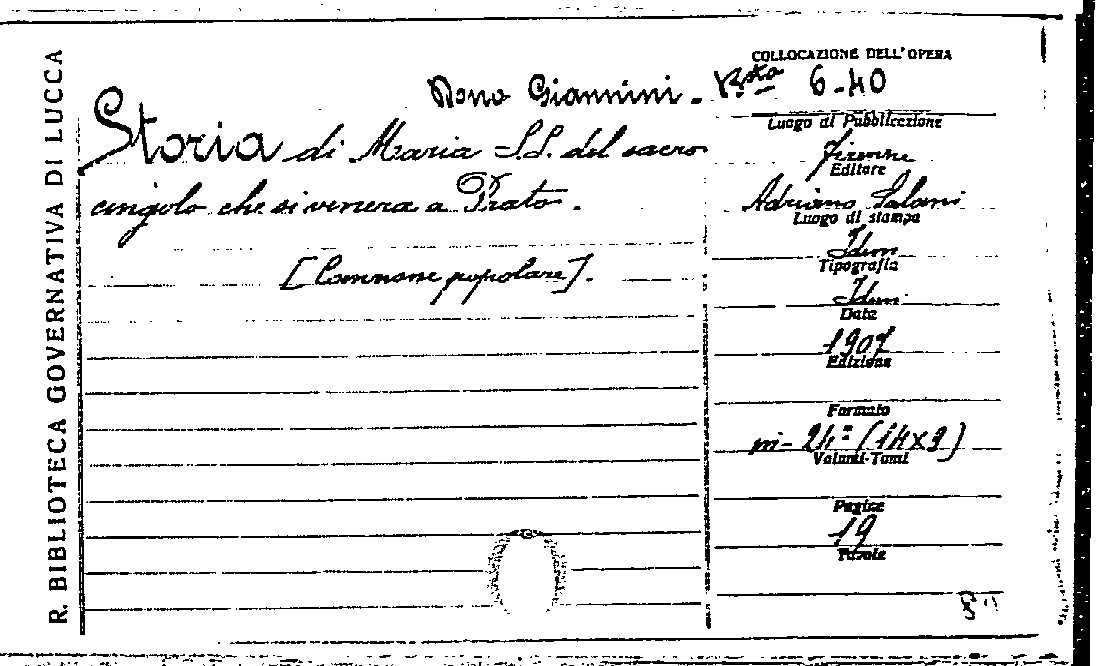 R. BIBLIOTECA GOVERNATIVA DI LUCCA
Dono Giannini.
Storia di Maria SS. del sacro
cingolo che si venera a Prato.
[Canzone popolare].
COLLOCAZIONE DELL'OPERA
6-40
Luogo di Pubblicazione
Firenze
Editore
Adriano Salani
Luogo di stampa
Idem
Tipografia
Idem
Data
1907
Edizione
Formato
in-24º (14x9)
Volumi-Tomi
Pagine
19
Tavole